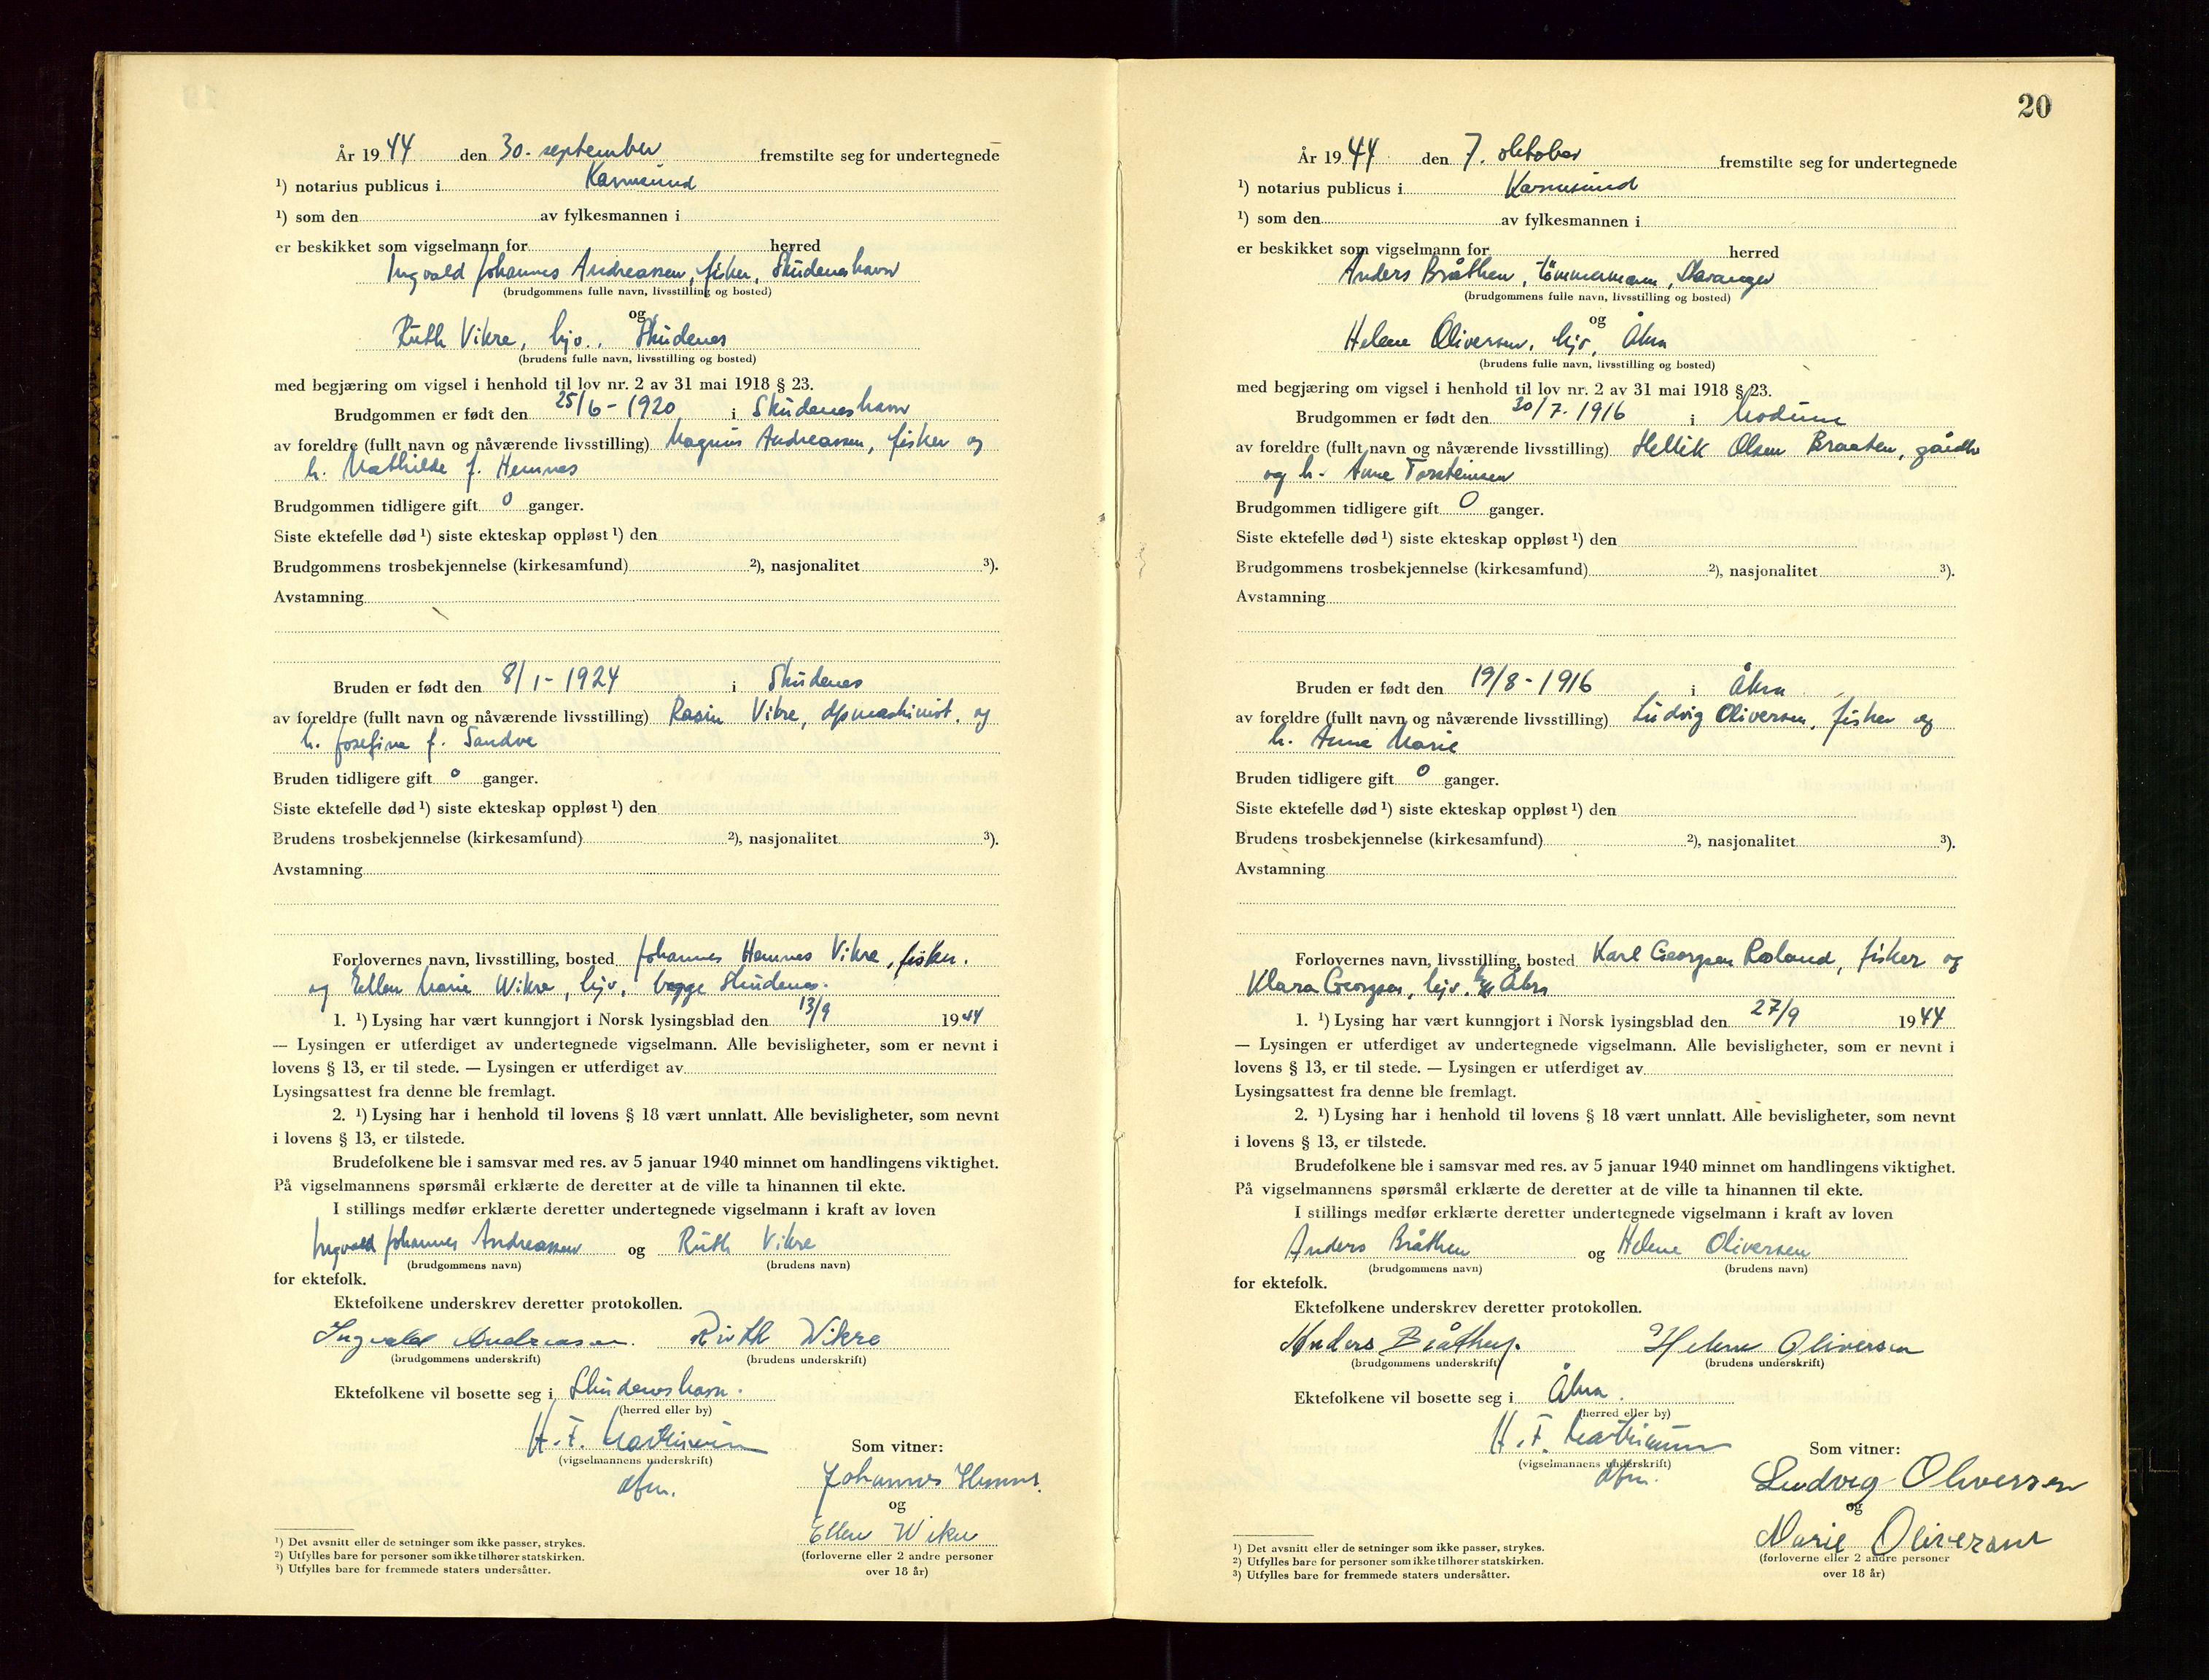 År 1944 den 30. september fremstilte seg for undertegnede
¹) notarius publicus i Karmsund
¹) som den av fylkesmannen i
er beskikket som vigselmann for herred
Ingvald Johannes Andreassen, fisker, Skudeneshavn
(brudgommens fulle navn, livsstilling og bosted)
og
Ruth Vikre, hjv., Skudenes
(brudens fulle navn, livsstilling og bosted)
med begjæring om vigsel i henhold til lov nr. 2 av 31 mai 1918 § 23.
Brudgommen er født den 25/6 - 1920 i Skudeneshavn
av foreldre (fullt navn og nåværende livsstilling) Magnus Andreassen, fisker og
h. Mathilde f. Hemnes
Brudgommen tidligere gift 0 ganger.
Siste ektefelle død ¹) siste ekteskap oppløst ¹) den
Brudgommens trosbekjennelse (kirkesamfund) ²), nasjonalitet ³).
Avstamning
Bruden er født den 8/1 - 1924 i Skudenes
av foreldre (fullt navn og nåværende livsstilling) Rasin Vikre, dpmaskinist, og
h. Josefine f. Sandve
Bruden tidligere gift 0 ganger.
Siste ektefelle død ¹) siste ekteskap oppløst ¹) den
Brudens trosbekjennelse (kirkesamfund) ²), nasjonalitet ³).
Avstamning
Forlovernes navn, livsstilling, bosted Johannes Hemnes Vikre, fisker.
og Ellen Marie Wikre, hjv. begge Skudenes.
1. ¹) Lysing har vært kunngjort i Norsk lysingsblad den 13/9 1944
— Lysingen er utferdiget av undertegnede vigselmann. Alle bevisligheter, som er nevnt i
lovens § 13, er til stede. — Lysingen er utferdiget av
Lysingsattest fra denne ble fremlagt.
2. ¹) Lysing har i henhold til lovens § 18 vært unnlatt. Alle bevisligheter, som nevnt
i lovens § 13, er tilstede.
Brudefolkene ble i samsvar med res. av 5 januar 1940 minnet om handlingens viktighet.
På vigselmannens spørsmål erklærte de deretter at de ville ta hinannen til ekte.
I stillings medfør erklærte deretter undertegnede vigselmann i kraft av loven
Ingvald Johannes Andreassen og Ruth Vikre
(brudgommens navn) (brudens navn)
for ektefolk.
Ektefolkene underskrev deretter protokollen.
Ingvald Andreassen. Ruth Wikre
(brudgommens underskrift) (brudens underskrift)
Ektefolkene vil bosette seg i Skudeneshavn.
(herred eller by)
H. F. Mathiesen
(vigselmannens underskrift)
dfm.
Som vitner:
Johannes Hemnes
og
Ellen Wikre
(forloverne eller 2 andre personer
over 18 år)
¹) Det avsnitt eller de setninger som ikke passer, strykes.
²) Utfylles bare for personer som ikke tilhører statskirken.
³) Utfylles bare for fremmede staters undersåtter.
20
År 1944 den 7. oktober fremstilte seg for undertegnede
¹) notarius publicus i Karmsund
¹) som den av fylkesmannen i
er beskikket som vigselmann for herred
Anders Bråthen, tömmermann, Stavanger
(brudgommens fulle navn, livsstilling og bosted)
og
Helene Oliversen, hjv, Åkra
(brudens fulle navn, livsstilling og bosted)
med begjæring om vigsel i henhold til lov nr. 2 av 31 mai 1918 § 23.
Brudgommen er født den 30/7. 1916 i Modum
av foreldre (fullt navn og nåværende livsstilling) Hellik Olsen Braaten, gårdbr
og h. Anne Torsteinsen
Brudgommen tidligere gift 0 ganger.
Siste ektefelle død ¹) siste ekteskap oppløst ¹) den
Brudgommens trosbekjennelse (kirkesamfund) ²), nasjonalitet ³).
Avstamning
Bruden er født den 19/8 - 1916 i Åkra
av foreldre (fullt navn og nåværende livsstilling) Ludvig Oliversen, fisker og
h. Anne Marie
Bruden tidligere gift 0 ganger.
Siste ektefelle død ¹) siste ekteskap oppløst ¹) den
Brudens trosbekjennelse (kirkesamfund) ²), nasjonalitet ³).
Avstamning
Forlovernes navn, livsstilling, bosted Karl Georgsen Roland, fisker og
Klara Georgsen, hjv. Åkra
1. ¹) Lysing har vært kunngjort i Norsk lysingsblad den 27/9 1944
— Lysingen er utferdiget av undertegnede vigselmann. Alle bevisligheter, som er nevnt i
lovens § 13, er til stede. — Lysingen er utferdiget av
Lysingsattest fra denne ble fremlagt.
2. ¹) Lysing har i henhold til lovens § 18 vært unnlatt. Alle bevisligheter, som nevnt
i lovens § 13, er tilstede.
Brudefolkene ble i samsvar med res. av 5 januar 1940 minnet om handlingens viktighet.
På vigselmannens spørsmål erklærte de deretter at de ville ta hinannen til ekte.
I stillings medfør erklærte deretter undertegnede vigselmann i kraft av loven
Anders Bråthen og Helene Oliversen
(brudgommens navn) (brudens navn)
for ektefolk.
Ektefolkene underskrev deretter protokollen.
Anders Bråthen. Helene Oliversen
(brudgommens underskrift) (brudens underskrift)
Ektefolkene vil bosette seg i Åkra.
(herred eller by)
H. F. Mathiesen
(vigselmannens underskrift)
dfm.
Som vitner:
Ludvig Oliversen
og
Marie Oliversen
(forloverne eller 2 andre personer
over 18 år)
¹) Det avsnitt eller de setninger som ikke passer, strykes.
²) Utfylles bare for personer som ikke tilhører statskirken.
³) Utfylles bare for fremmede staters undersåtter.